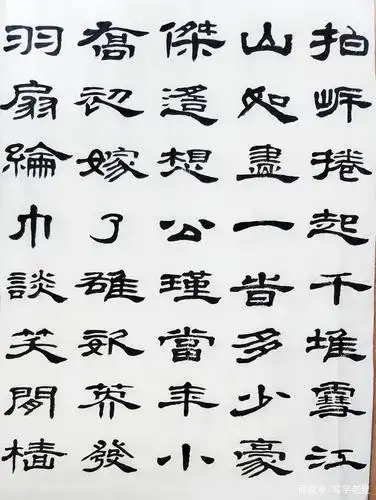 拍岸捲起千堆雪江
山如畫一旹多少豪
傑遙想公瑾當年小
喬初嫁了雄姿英發
羽扇綸巾談笑間檣